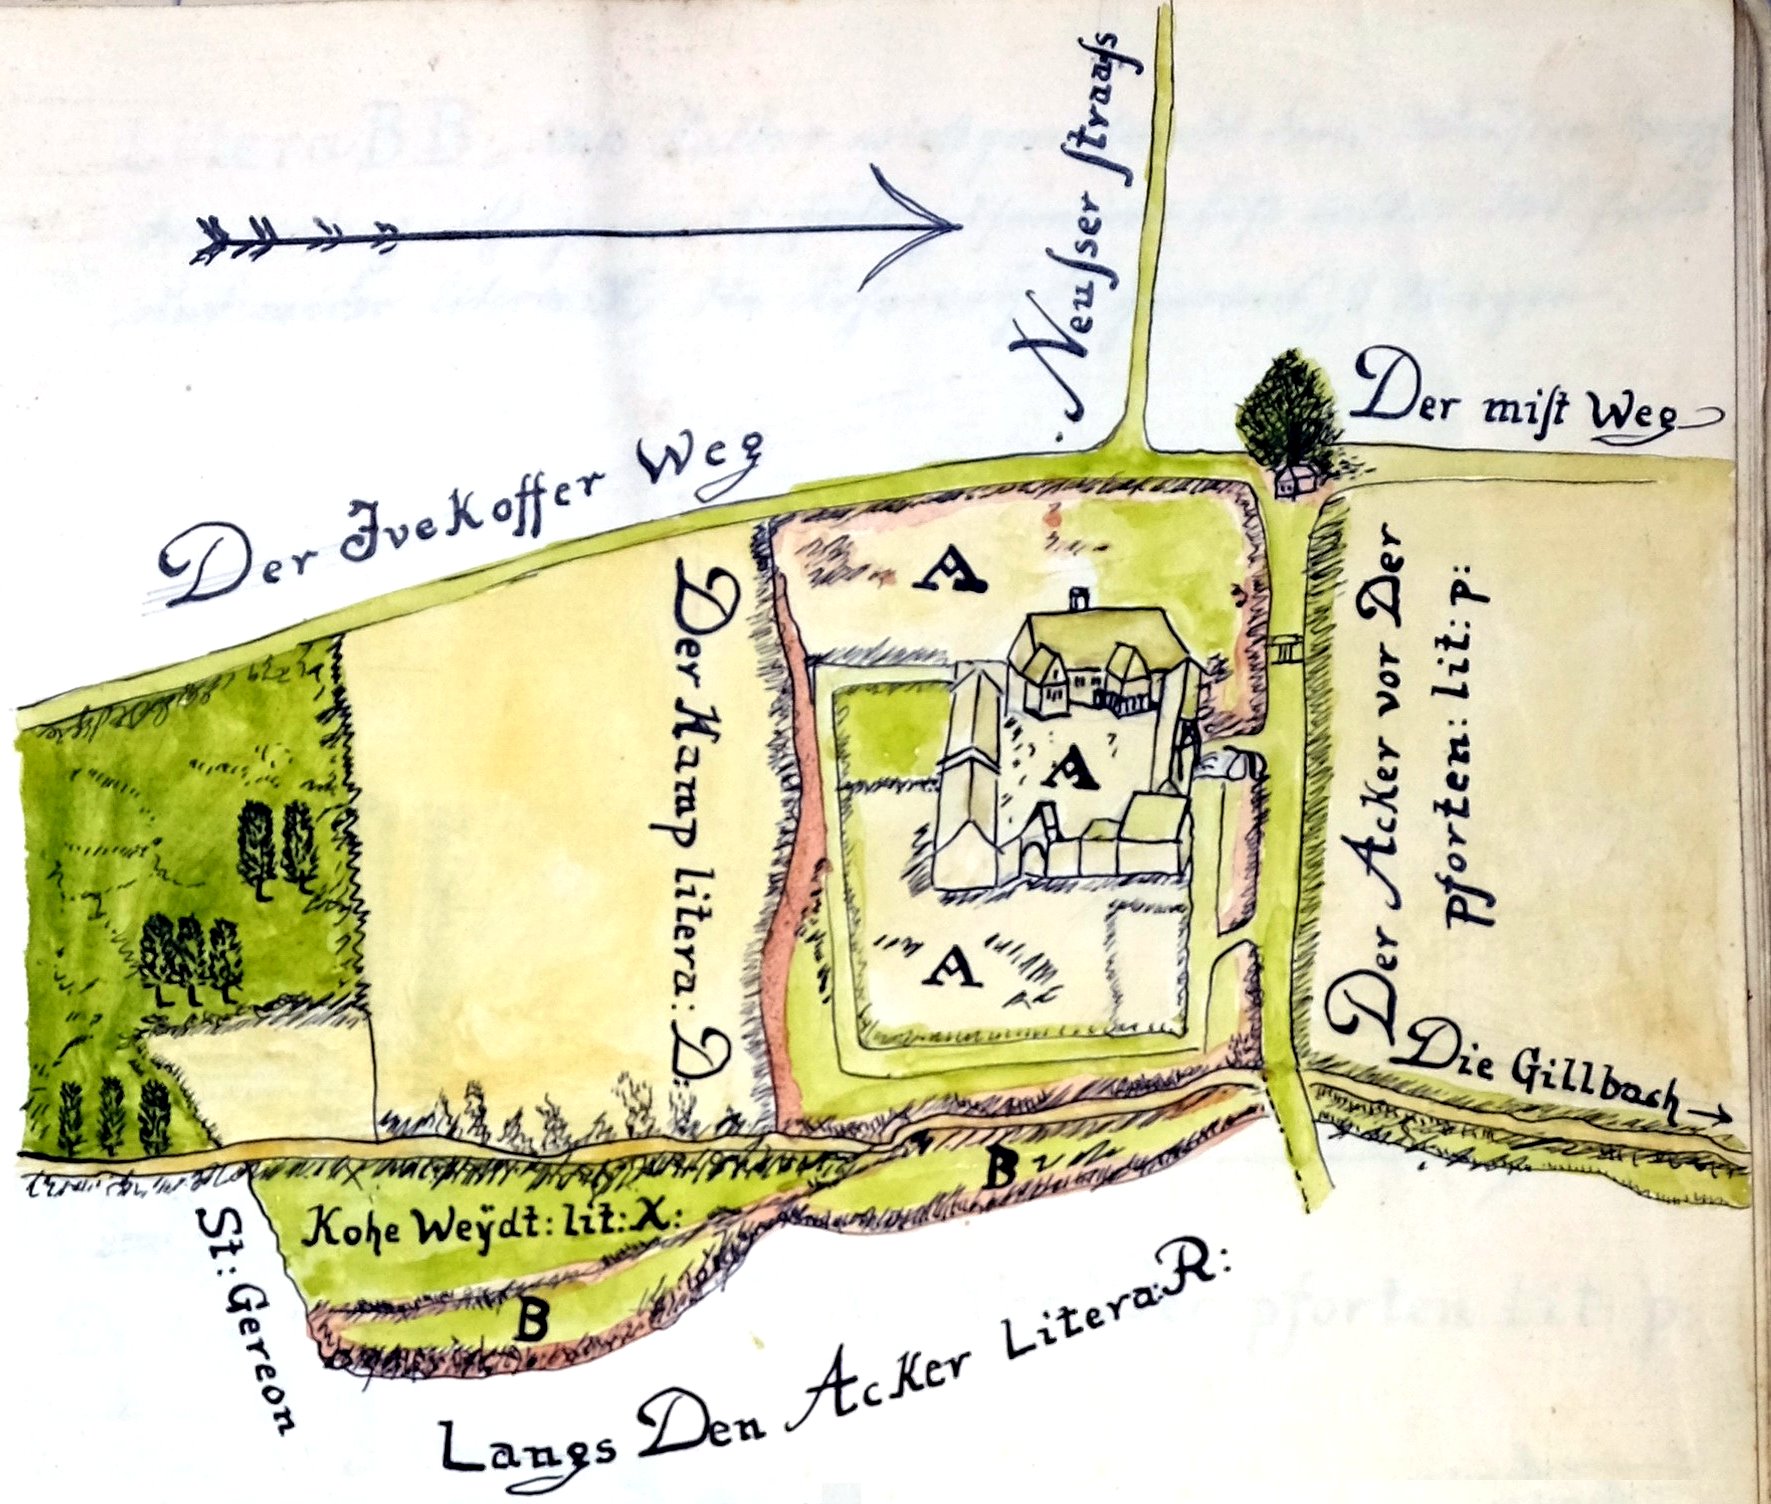 Neuſser ſtraaſs
Der miſt Weg
Der JveKoffer Weg
A
Der Kamp litera: D:
A
A
Der Acker vor Der
pforten: lit: p:
Die Gillbach
B
Kohe Weÿdt: lit: X:
B
St: Gereon
Langs Den Acker Litera: R: